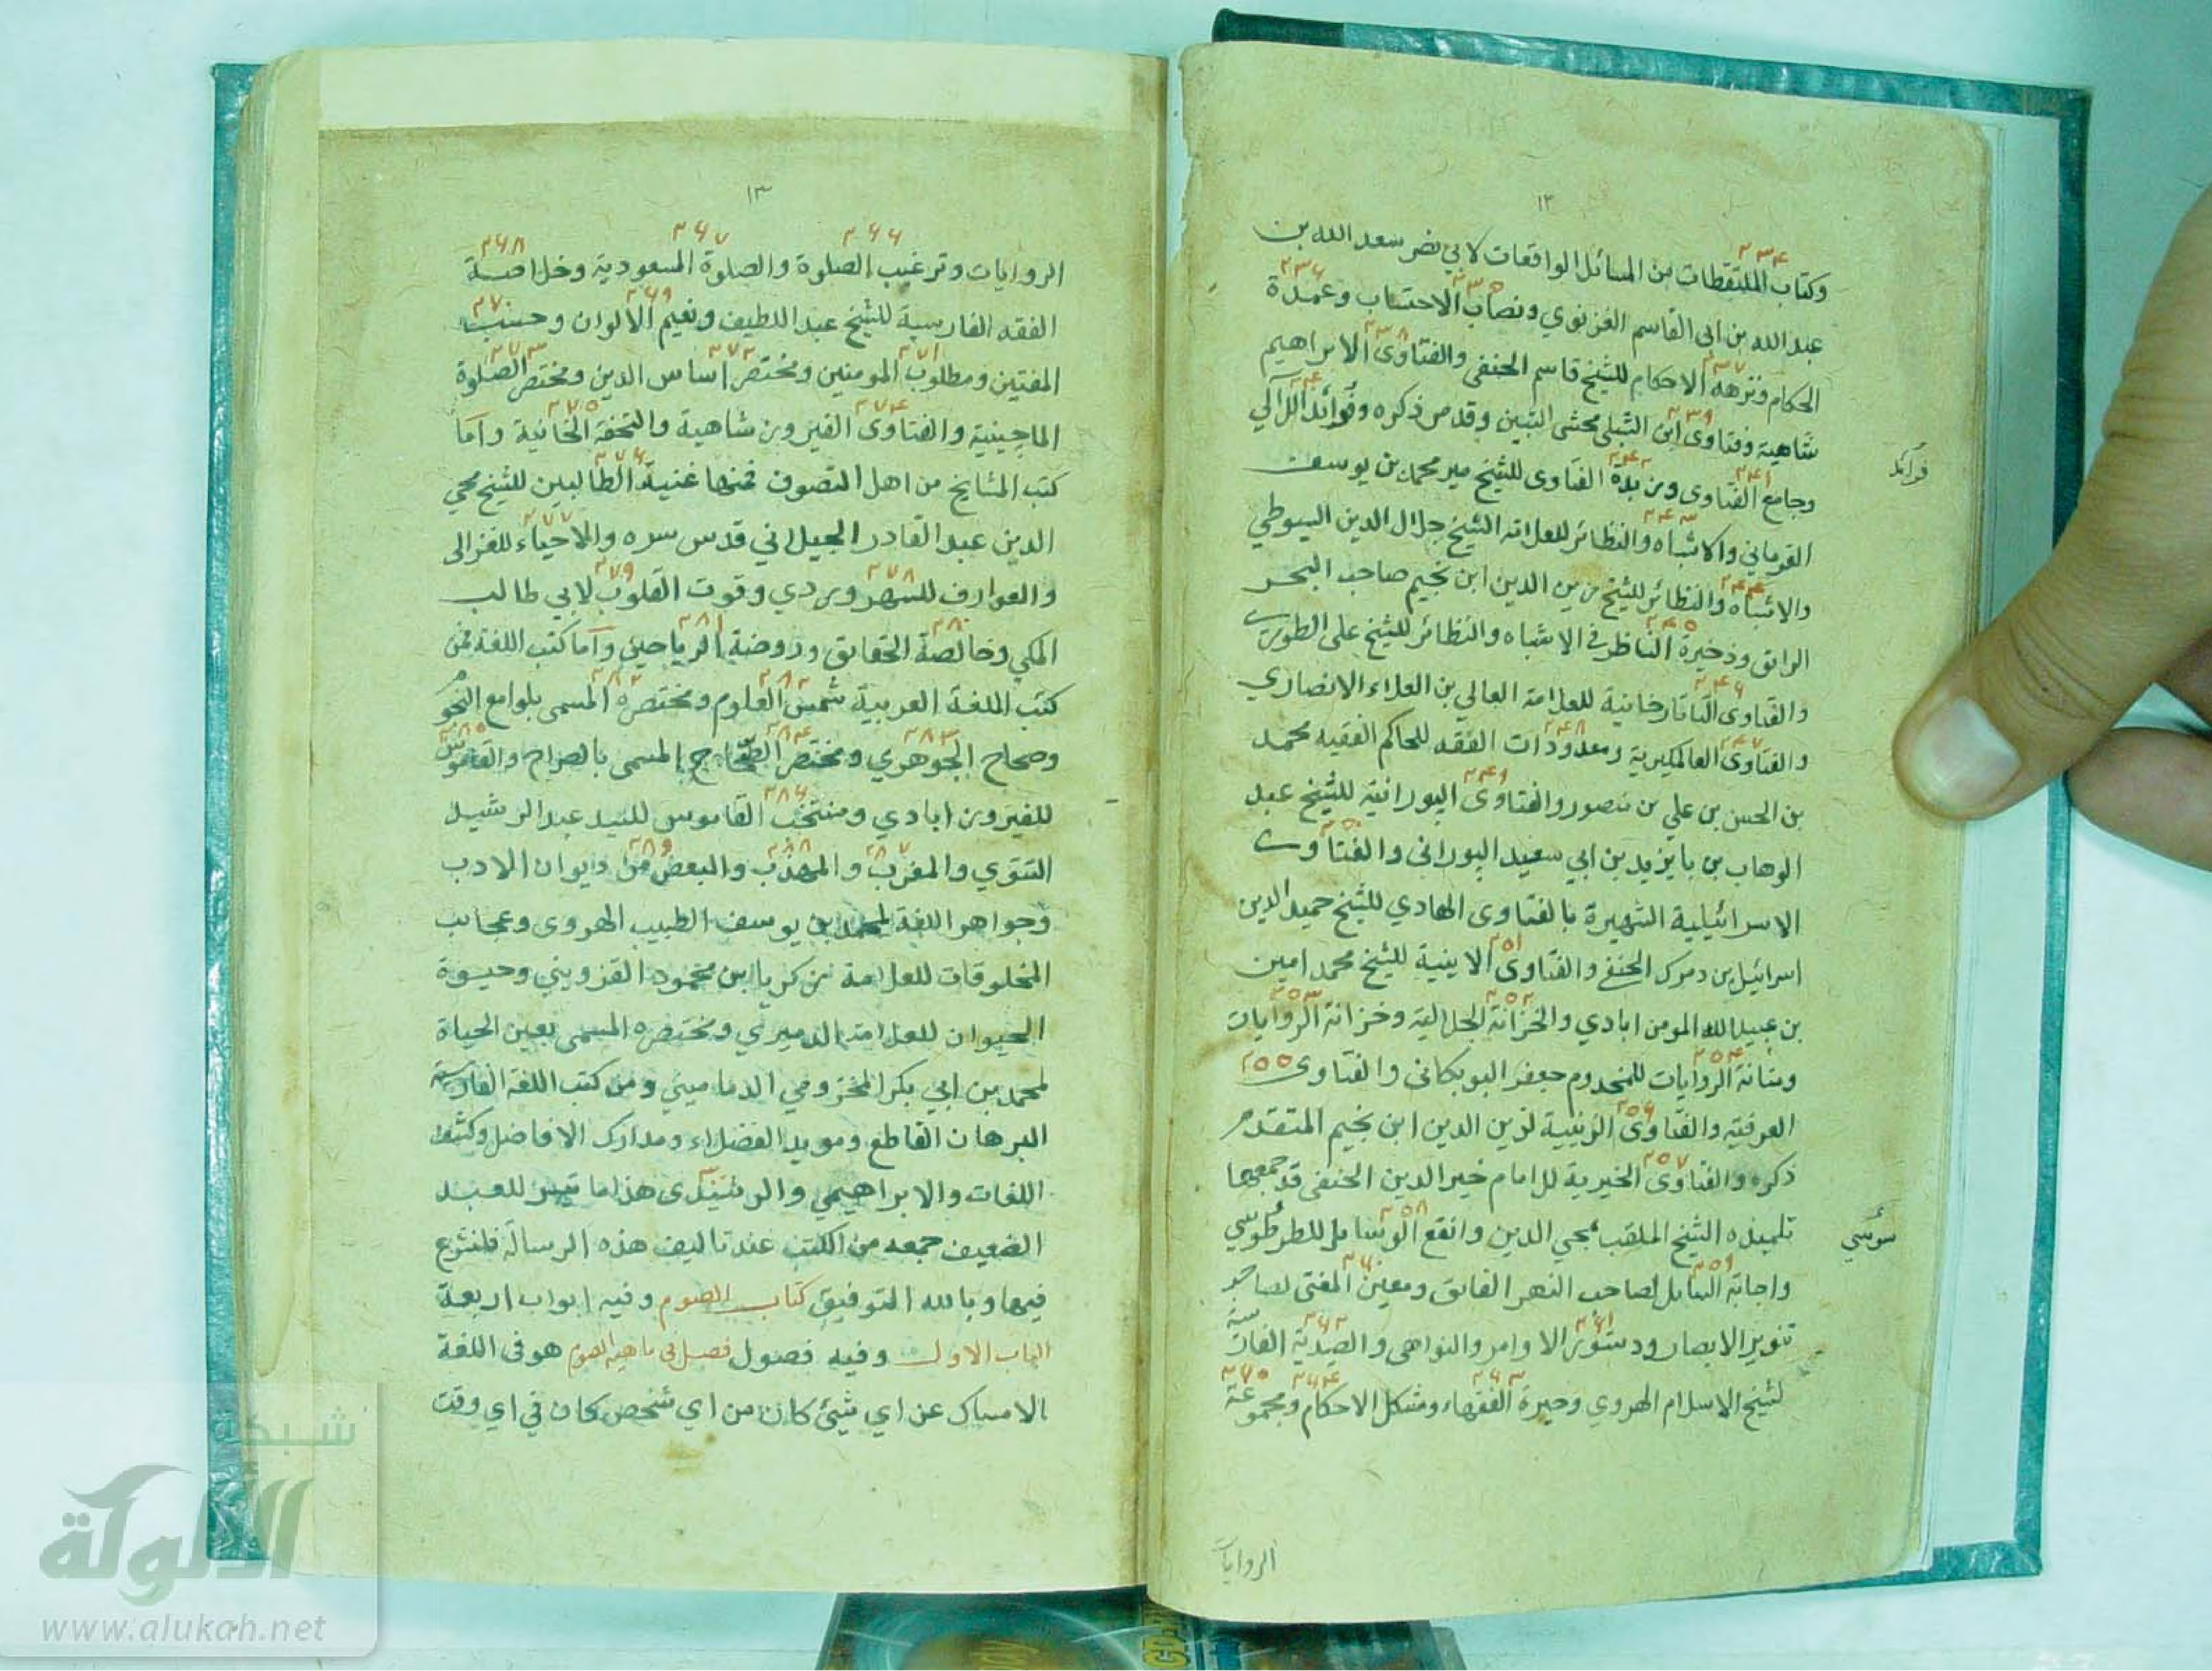 ١٢
وكتاب الملتقطات من المسائل الواقعات لابي نصر سعد الله بن
عبد الله بن ابى القاسم الغزنوي ونصاب الاحتساب وعمدة
الحكام ونزهة الاحكام للشيخ قاسم الحنفي والفتاوى الابراهيم
شاهية وفتاوى ابن الشلبي محشى التبين وقد مر ذكره وفوائد اللآلي
فرائد
وجامع الفتاوى وزبدة الفتاوى للشيخ مير محمد بن يوسف
القرماني والاشباه والنظائر للعلامة الشيخ جلال الدين السيوطي
والاشباه والنظائر للشيخ زين الدين ابن نجيم صاحب البحر
الرائق وذخيرة الناظر في الاشباه والنظائر للشيخ على الطوري
والفتاوى التاتارخانية للعلامة العالي بن العلاء الانصاري
والفتاوى العالمكيرية ومعدودات الفقه للحاكم الفقيه محمد
بن الحسن بن علي بن منصور والفتاوى البورانية للشيخ عبد
الوهاب بن بايزيد بن ابي سعيد البوراني والفتاوى
الاسرائيلية الشهيرة بالفتاوى الهادي للشيخ حميد الدين
اسرائيل بن دمرك الحنفي والفتاوى الامينية للشيخ محمد امين
بن عبيد الله المومن ابادي والخزانة الجلالية وخزانة الروايات
ومتانة الروايات للمخدوم جعفر البوبكاني والفتاوى
العرفية والفتاوى الزينية لزين الدين ابن نجيم المتقدم
ذكره والفتاوى الخيرية للامام خير الدين الحنفى قد جمعها
تلميذه الشيخ الملقب بمحي الدين وانفع الوسائل للطرطوسي
سوسي
واجابة السائل لصاحب النهر الفائق ومعين المفتى لصاحب
تنوير الابصار ودستور الاوامر والنواهى والصيدية الفارسية
لشيخ الاسلام الهروي وحيرة الفقهاء ومشكل الاحكام ومجموعة
الروايات
١٣
الروايات وترغيب الصلوة والصلوة المسعودية وخلاصة
الفقه الفارسية للشيخ عبد اللطيف ونعيم الالوان وحسب
المفتين ومطلوب المومنين ومختصر اساس الدين ومختصر الصلوة
الماچينية والفتاوى الفيروز شاهية والتحفة الخانية واما
كتب المشايخ من اهل التصوف فمنها غنية الطالبين للشيخ محي
الدين عبد القادر الجيلاني قدس سره والاحياء للغزالى
والعوارف للسهروردي وقوت القلوب لابي طالب
المكي وخالصة الحقايق وروضة الرياحين واما كتب اللغة فمن
كتب اللغة العربية شمس العلوم ومختصره المسمى بلوامع النجوم
وصحاح الجوهري ومختصر الصحاح المسمى بالصراح والقاموس
للفيروز ابادي ومنتخب القاموس للسيد عبد الرشيد
التتوي والمغرب والمهذب والبعض من ديوان الادب
وجواهر اللغة لمحمد بن يوسف الطبيب الهروى وعجائب
المخلوقات للعلامة زكريا ابن محمود القزويني وحيوة
الحيوان للعلامة الدميري ومختصره المسمى بعين الحياة
لمحمد بن ابي بكر المخزومي الدماميني ومن كتب اللغة الفارسية
البرهان القاطع ومويد الفضلاء ومدارك الافاضل وكشف
اللغات والابراهيمي والرشيدى هذا ما تيسر للعبد
الضعيف جمعه من الكتب عند تاليف هذه الرسالة فلنشرع
فيها وبالله التوفيق كتاب الصوم وفيه ابواب اربعة
الباب الاول وفيه فصول فصل في ماهية الصوم هو في اللغة
الامساك عن اي شيئ كان من اي شخص كان في اي وقت
شبكة
الألوكة
www.alukah.net